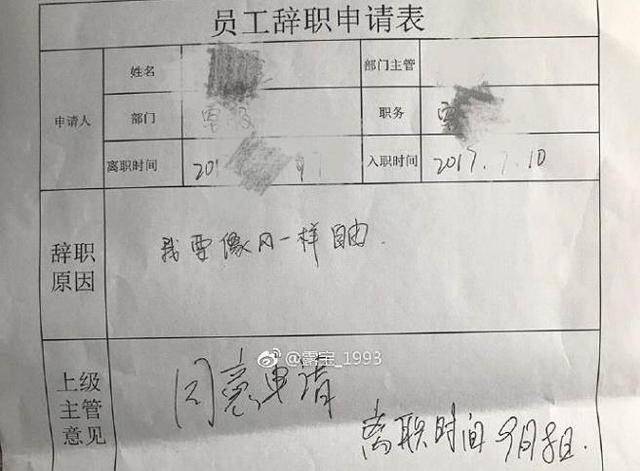 员工辞职申请表
姓名
部门主管
申请人
部门
职务
离职时间 201
入职时间 2017.7.10
辞职原因
我要像风一样自由.
@露宝_1993
上级主管意见
同意申请
离职时间9月8日.